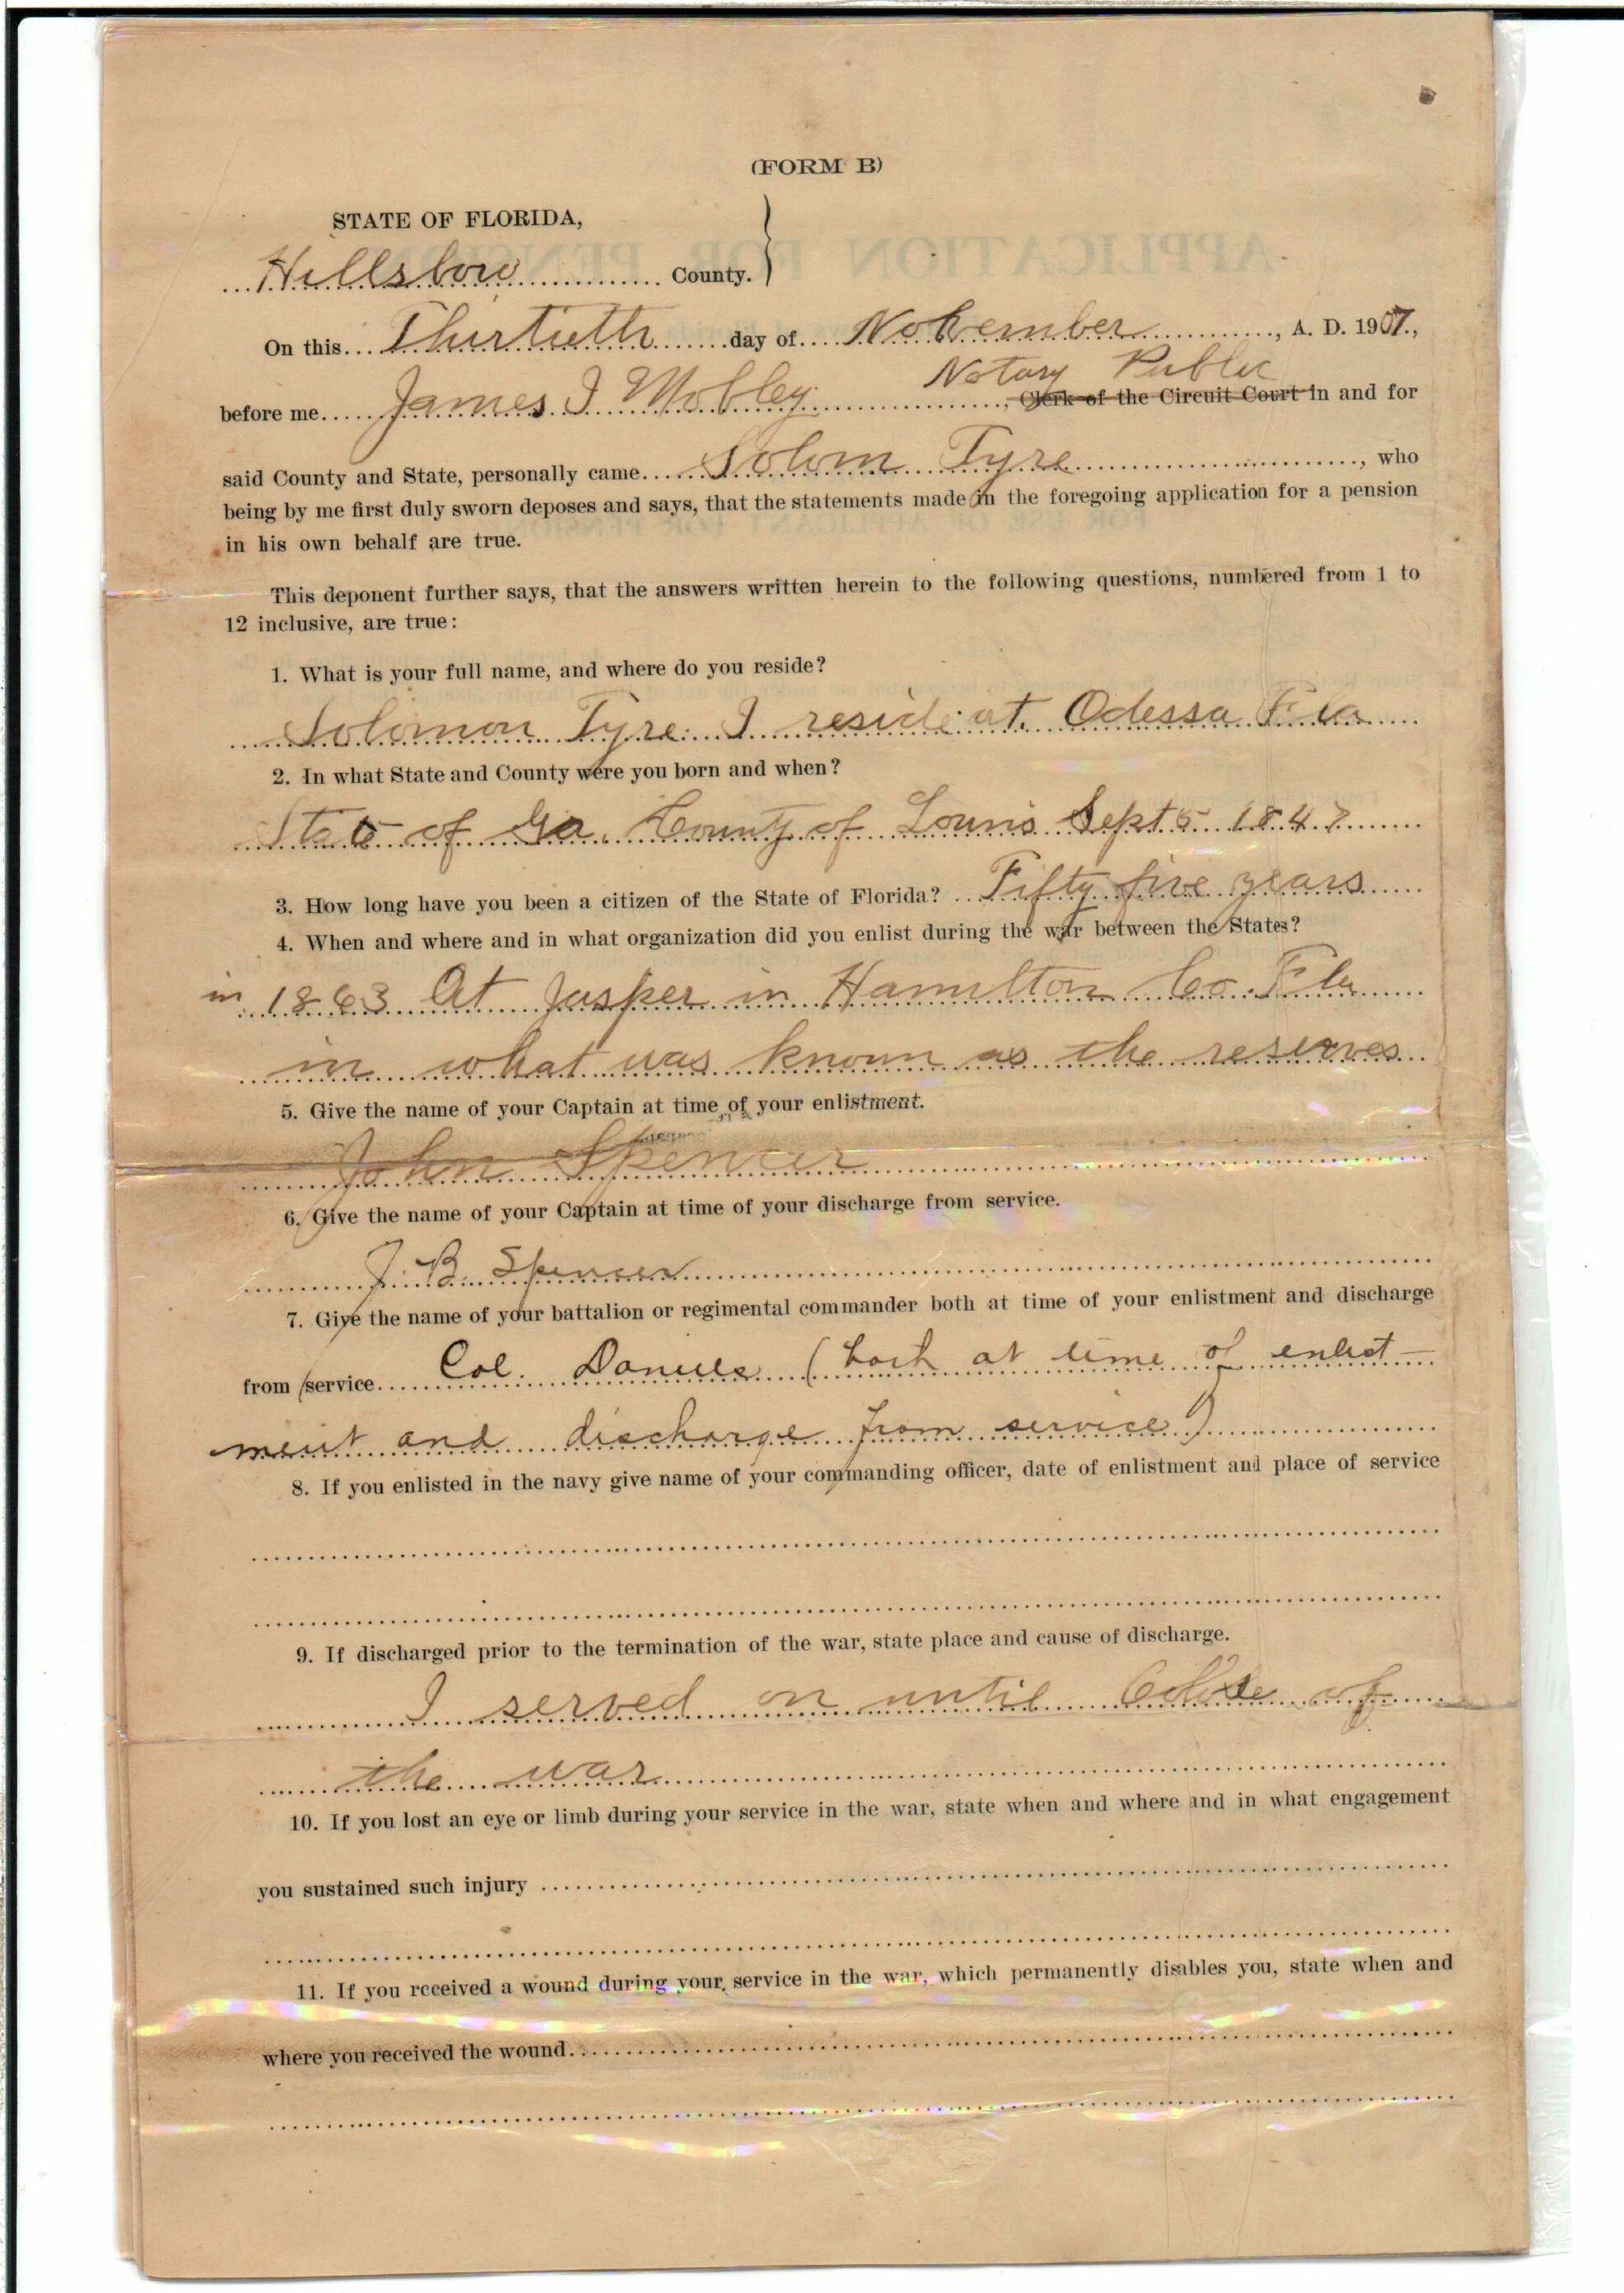 (FORM B)
STATE OF FLORIDA,
Hillsboro County.
On this Thirtieth day of November, A. D. 1907.,
Notary Public
before me James J Mobley, Clerk of the Circuit Court in and for
said County and State, personally came Solom Tyre, who
being by me first duly sworn deposes and says, that the statements made in the foregoing application for a pension
in his own behalf are true.
This deponent further says, that the answers written herein to the following questions, numbered from 1 to
12 inclusive, are true:
1. What is your full name, and where do you reside?
Solomon Tyre I reside at Odessa Fla
2. In what State and County were you born and when?
State of Ga. County of Sept 5 184
3. How long have you been a citizen of the State of Florida? Fifty five years
4. When and where and in what organization did you enlist during the war between the States?
in 1863 At Jasper in Hamilton Co. Fla
in what was known as the reserves
5. Give the name of your Captain at time of your enlistment.
John Spencer
6. Give the name of your Captain at time of your discharge from service.
J. B. Spencer
7. Give the name of your battalion or regimental commander both at time of your enlistment and discharge
from service Col. Daniels (both at time of enlist-
ment and discharge from service)
8. If you enlisted in the navy give name of your commanding officer, date of enlistment and place of service
9. If discharged prior to the termination of the war, state place and cause of discharge.
I served on until Close of
the war
10. If you lost an eye or limb during your service in the war, state when and where and in what engagement
you sustained such injury
11. If you received a wound during your service in the war, which permanently disables you, state when and
where you received the wound